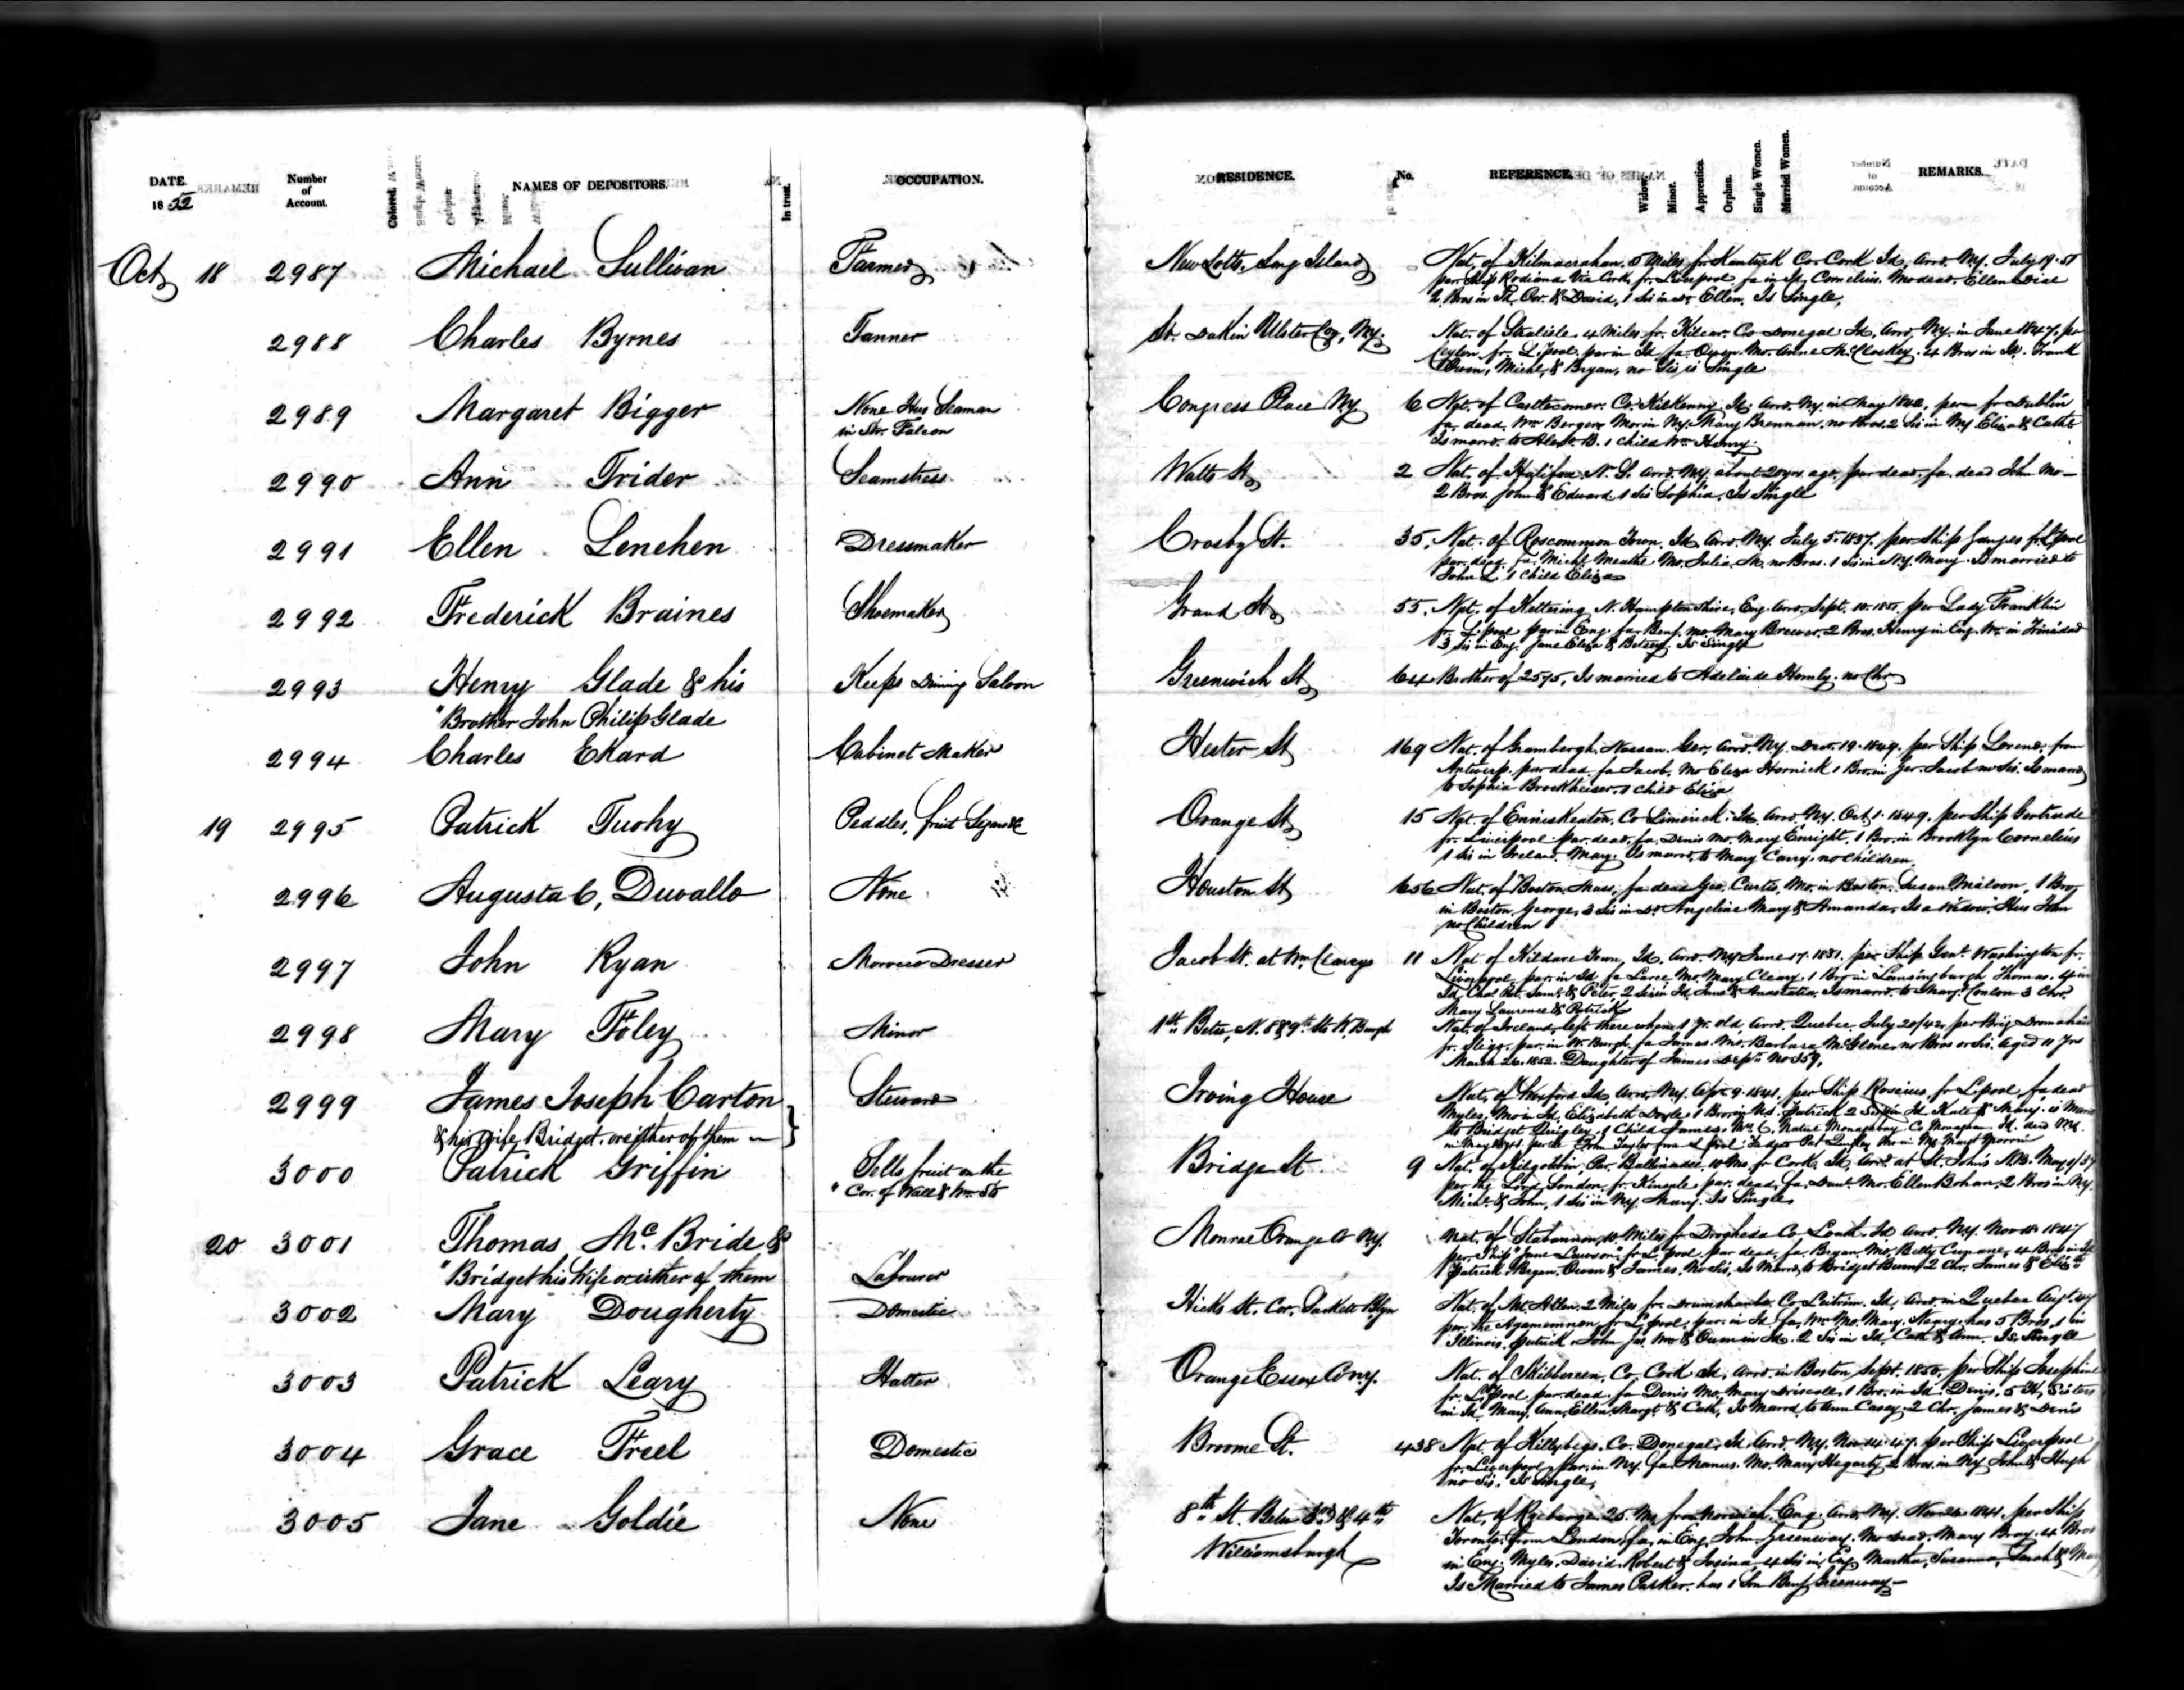 DATE. Number of Account. Colored. NAMES OF DEPOSITORS. In trust. OCCUPATION. RESIDENCE. No. REFERENCE. Widow. Minor. Apprentice. Orphan. Single Women. Married Women. REMARKS.
1852
Oct 18 2987 Michael Sullivan Farmer New Lotts, Long Island Nat. of Kilmacrahan. 5 Miles fr Kantuck Co. Cork Id, arrd. NY. July 19. 51
per Ship Rodiana Via Cork, fr. Liverpool fa in Id, Cornelius. Mo dead. Ellen
2 Bros in Id, & David, 1 Sis in Do Ellen, Is Single,
2988 Charles Byrnes Tanner St. Dakin Ulster Coy, NY. Nat. of 4 Miles fr. Kilcar. Co Donegal. Id, arrd, NY. in June 1847. per
Ceylon fr. L.pool par in Id fa. Owen. Mo. Anne McCloskey. 4 Bros in Id. Frank
Owen, Michl, & Bryan, no Sis is Single
2989 Margaret Bigger None Hus Seaman Congress Place NY 6 Nat. of Castlecomer. Co. Kilkenny Id; arrd. NY. in May per fr Dublin
in Str. Falcon fa. dead, Wm Bergen Mo in NY. Mary Brennan, no Bros. 2 Sis in NY Eliza & Cathe
Is marrd. to B. 1 Child Wm Henry.
2990 Ann Trider Seamstress Watts St 2 Nat. of Halifax N. S. arrd. NY, about 20 yrs ago, par dead, fa. dead John Mo
2 Bros. John & Edward 1 Sis Sophia, Is Single
2991 Ellen Lenehen Dressmaker Crosby St. 35, Nat. of Roscommon Town, Id, arrd. NY. July 5. 1837. per Ship Ganges fr. L'pool
par. dead, fa. Michl Mo. Julia no Bros. 1 Sis in N.Y. Mary. Is married to
John L, 1 Child Eliza
2992 Frederick Braines Shoemaker Grand St 55, Nat. of Kettering N. Hamptonshire, Eng. arrd. Sept. 10. 1851. per Lady Franklin
fr. L.pool par in Eng. fa. Benj. mo. Mary Brewer. 2 Bros. Henry in Eng. Wm. in Trinidad
3 Sis in Eng. Jane Eliza & Betsey. Is Single
2993 Henry Glade & his Keeps Dining Saloon Greenwich St 64 Brother of 2575, Is married to Adelaide no Chr
" Brother John Philip Glade
2994 Charles Ekard Cabinet Maker Hester St 169 Nat. of Grambergh. Nassau. Ger, arrd. NY. Decr. 19. 1849. per Ship from
Antwerp. par dead fa Jacob, Mo Eliza Hornick 1 Bro in Ger. Jacob no Sis. Is marrd
to Sophia Brockheiser. 1 child Eliza
19 2995 Patrick Tuohy Peddles, fruit Segars &c Orange St 15 Nat. of Enniskeaton, Co Limerick. Id. arrd. NY. Oct. 1. 1849. per Ship Gertrude
fr. Liverpool par. dead. fa. Denis Mo. Mary Enright, 1 Bro. in Brooklyn Cornelius
1 Sis in Ireland. Mary. Is marrd. to Mary Carry. no children,
2996 Augusta C, Duvallo None Houston St 656 Nat. of Boston. Mass, fa dead Geo. Curtis, Mo. in Boston. Susan Maloon, 1 Bro
in Boston, George, 3 Sis in Do Angeline Mary & Amanda. Is a Widow. Hus John
no Children
2997 John Ryan Morocco Dresser Jacob St. at Wm Clearys 11 Nat. of Kildare Town, Id, arrd. NY June 17. 1851. per Ship Genl. Washington fr.
Liverpool, par. in Id. fa Lawce, Mo. Mary Cleary, 1 Bro in Lansingburgh Thomas. 4 in
Id, Chas. Pat. Saml, & Peter, 2 Sis in Id, Jane & Anastatia. Is marrd. to Mary Conlon 3 Chr.
Mary Laurence & Patrick
2998 Mary Foley Minor 1st. Betw, N. 8 & 9th. Sts W. Burgh Nat. of Ireland, left there when 1 yr. old, arrd. Quebec. July 20/42. per Brig Dromahair
fr. Sligo. par. in W. Burgh. fa James. Mo. Barbara McGlone. no Bros or Sis. aged 11 yrs
March 26. 1852. Daughter of James Depr No 359,
2999 James Joseph Carton Steward Irving House Nat. of Wexford Id, arrd. NY. Apr. 9. 1841, per Ship Roscius, fr L.pool fa dead
& his Wife, Bridget, or either of them Myles, Mo in Id, Elizabeth Doyle, 1 Bro in US. Patrick 2 Sis in Id Kate & Mary. is Marrd
to Bridget Quigley, 1 Child James. Co Monaghan Id. arrd NY.
in May per the John Taylor from L.pool. Pat Quigley Mo in NY Margt
3000 Patrick Griffin Sells fruit on the Bridge St 9 Nat. of Kilgobbin, Par. Ballinadee, 10 Ms. fr Cork, Id, arrd. at St. John's NB. May
" Cor. of Wall & Wm Sts per the Lord London, fr. Kinsale, par. dead, fa, Danl. Mo. Ellen Bohan, 2 Bros in NY.
Michl. & John, 1 Sis in NY, Mary. Is Single
20 3001 Thomas McBride & Monroe Orange Co NY. Nat. of Stabannon, 10 Miles fr Drogheda Co Louth, Id, arrd. NY. Nov 1847
" Bridget his Wife or either of them Labourer per Ship "Jane Lawson" fr L.pool. par dead, fa. Bryan. Mo, Betty 4 Bros in Id
Patrick Bryan, Owen & James, No Sis, Is Marrd, to Bridget 2 Chr, James & Elizth
3002 Mary Dougherty Domestic Hicks St. Cor. Sackett Blyn Nat. of Mt. Allen. 2 Miles fr. Drumshambo Co Leitrim. Id, arrd. in Quebec
per the Agamemnon fr L.pool, par. in Id fa, Wm Mo. Mary has 5 Bros, 1 in
Illinois. Patrick John Jas Wm & Owen in Id. 2 Sis in Id, Cath & Ann. Is, Single
3003 Patrick Leary Hatter Orange Essex Co NY. Nat. of Skibbereen, Co, Cork Id, arrd. in Boston Sept. 1850, per Ship Josephine
fr. L'Pool par. dead. fa Denis Mo. Mary Driscoll, 1 Bro. in Id. Denis, 5 Sisters
in Id, Mary, Ann, Ellen, Margt. & Cath, Is Marrd, to Ann Casey. 2 Chr. James & Denis
3004 Grace Freel Domestic Broome St. 438 Nat. of Killybegs. Co. Donegal, Id, arrd. NY. Nov. 14. 47. per Ship Liverpool
fr. Liverpool, par. in NY. fa. Manus. Mo. Mary Hegarty, 2 Bros. in NY John & Hugh
no Sis. Is Single,
3005 Jane Goldie None 8th. St. Betw 3rd & 4th Nat. of 25. Ms. from Norwich. Eng. arrd. NY. 1841, per Ship
Williamsburgh Toronto, from London, fa, in Eng, John Greenway, Mo dead. Mary Bray. 4 Bros
in Eng. Myles, David, Robert & Josina, 4 Sis in, Eng. Martha, Susanna, Sarah & Mary
Is Married to James Parker. has 1 Son Benj. Greenway